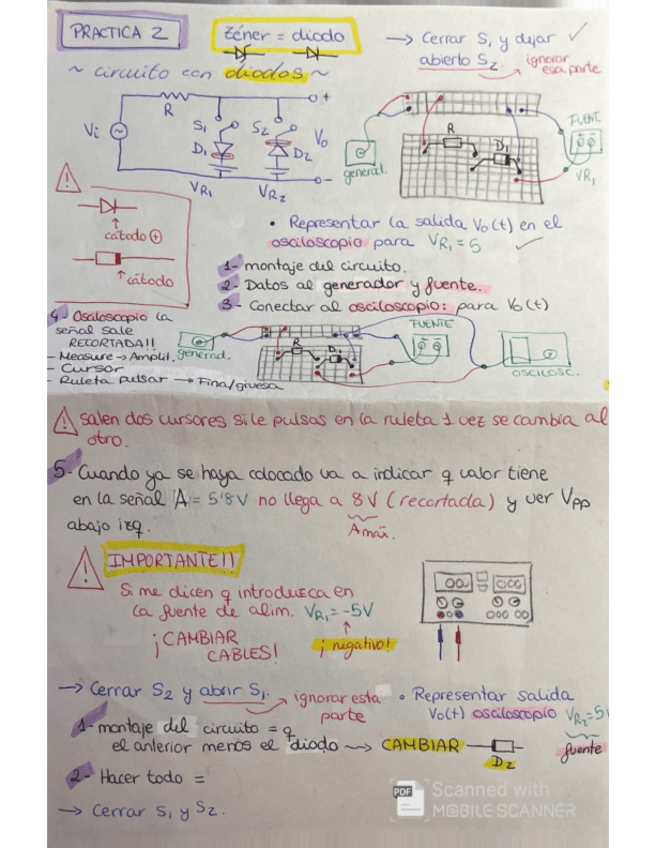 PRACTICA 2
zéner = diodo
→ Cerrar S1 y dejar ✓
abierto S2. → ignorar
esa parte
~ circuito con diodos ~
R
Vi
S1
S2
D1
D2
Vo
+
-
VR1
VR2
R
D1
generad.
FUENT.
VR1
cátodo +
cátodo
• Representar la salida Vo(t) en el
osciloscopio para VR1 = 5
1- montaje del circuito.
2- Datos al generador y fuente.
3- Conectar al osciloscopio: para Vo(t)
4- Osciloscopio la
señal sale
RECORTADA!!
- Measure → Amplit.
- Cursor
- Ruleta pulsar → Fina/gruesa
generad.
R
D1
FUENTE
OSCILOSC.
⚠ salen dos cursores si le pulsas en la ruleta 1 vez se cambia al
otro.
5- Cuando ya se haya colocado va a indicar q valor tiene
en la señal A = 5'8V no llega a 8V (recortada) y ver Vpp
abajo izq.
Amáx.
IMPORTANTE!!
Si me dicen q introduzca en
la fuente de alim. VR1 = -5V
¡CAMBIAR
CABLES!
¡negativo!
→ Cerrar S2 y abrir S1. → ignorar esta
parte
• Representar salida
Vo(t) osciloscopio VR2=5V
fuente
1- montaje del circuito = q
el anterior menos el diodo → CAMBIAR
D2
2- Hacer todo =
→ Cerrar S1 y S2.
PDF
Scanned with
MOBILE SCANNER